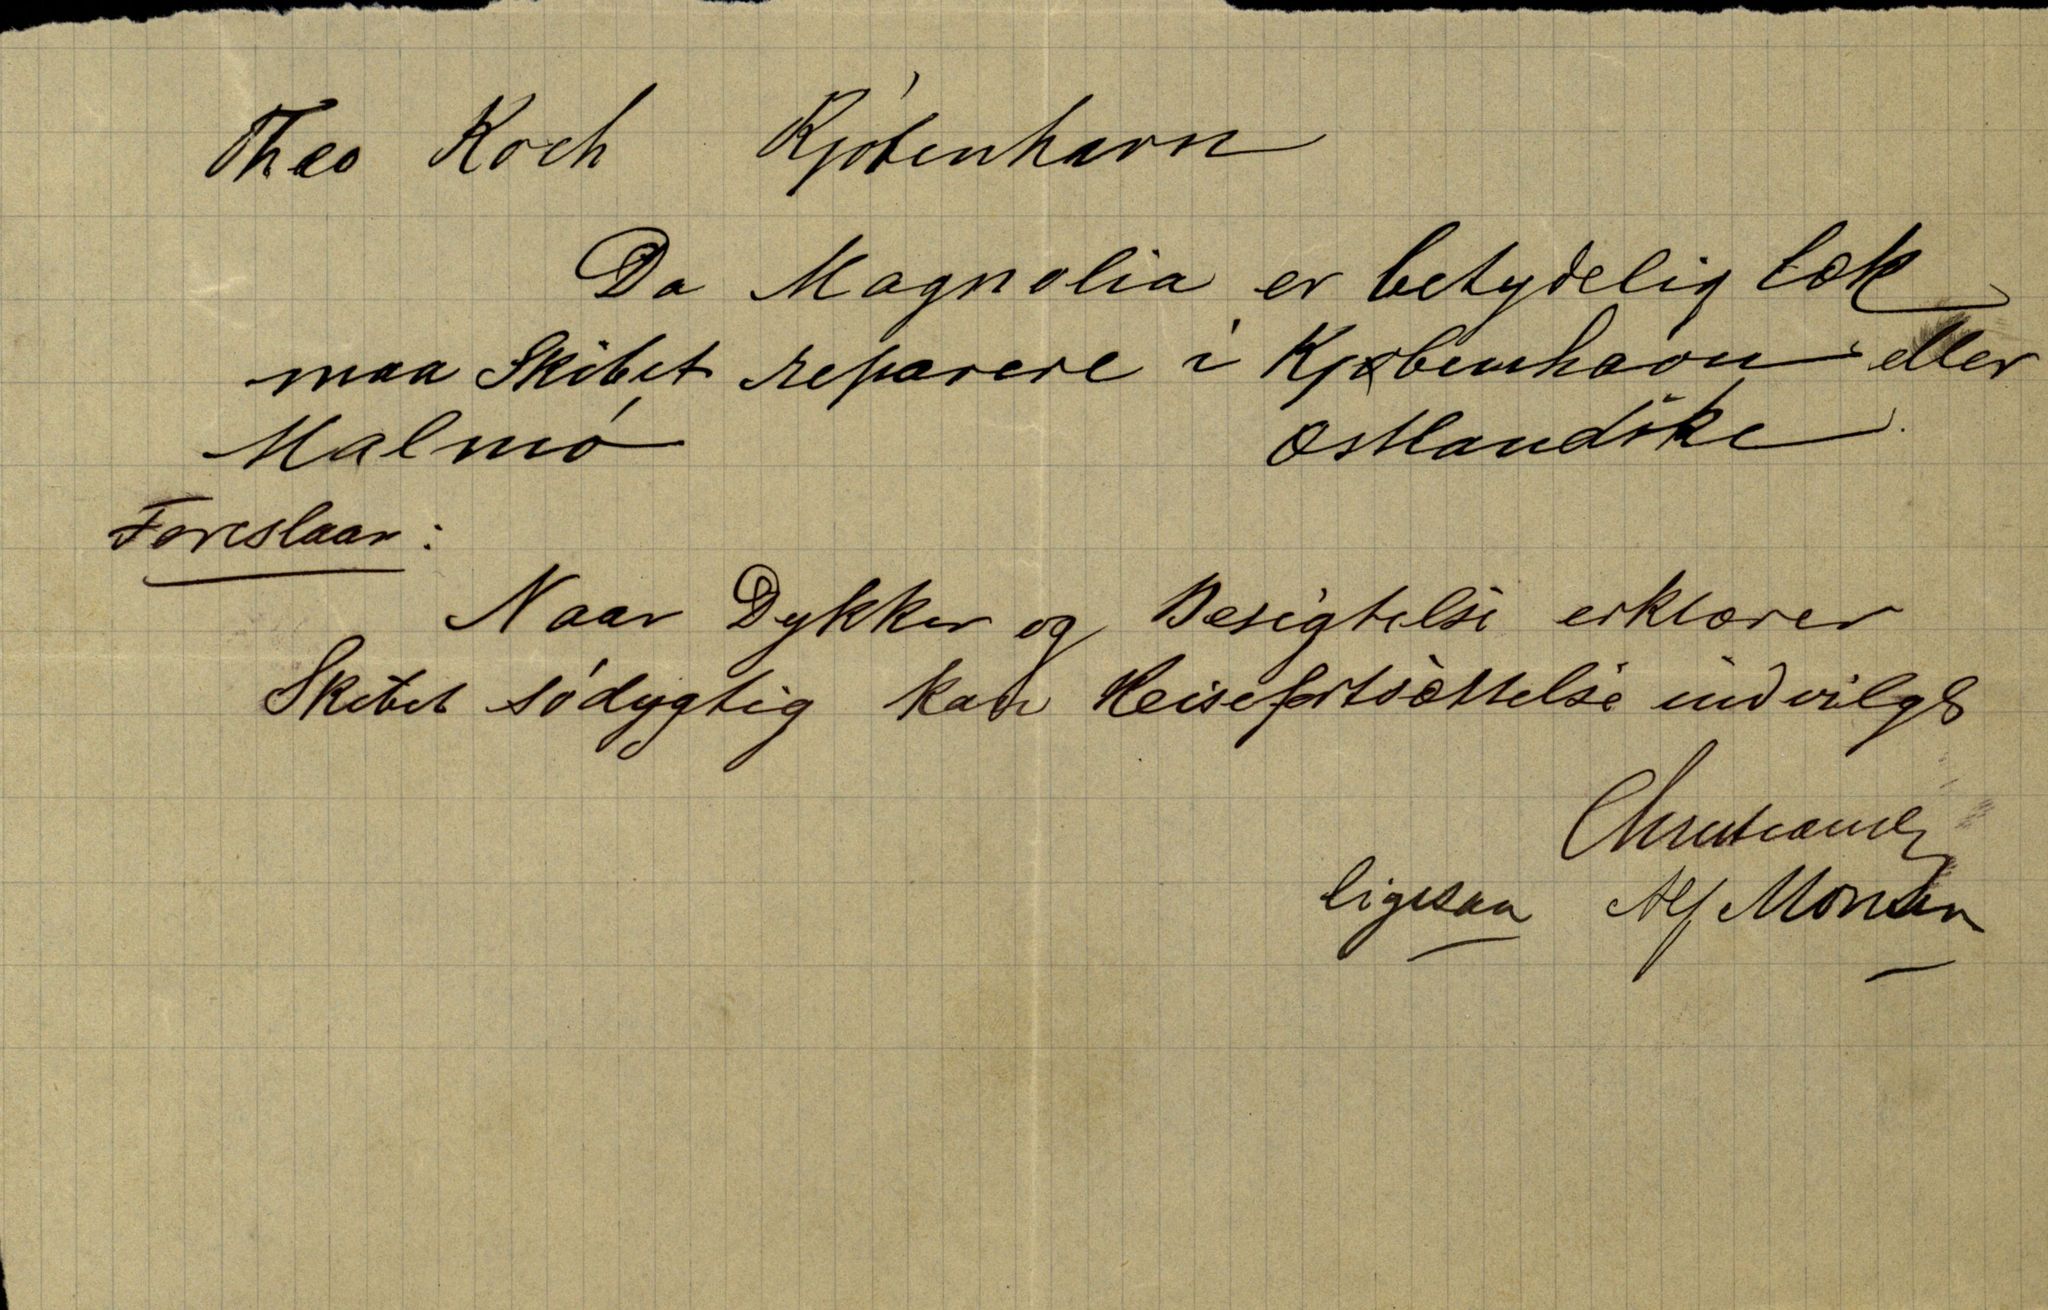 Theo Koch Kjóbenhavn
Da Magnolia er betydelig læk
maa Skibet reparere i Kjøbenhavn eller
Malmó Østlandske
Foreslaar:
Naar Dykker og Besigtelse erklærer
Skibet södygtig kan Reisefortsættelse indvilges
ligesaa Alf Monsen